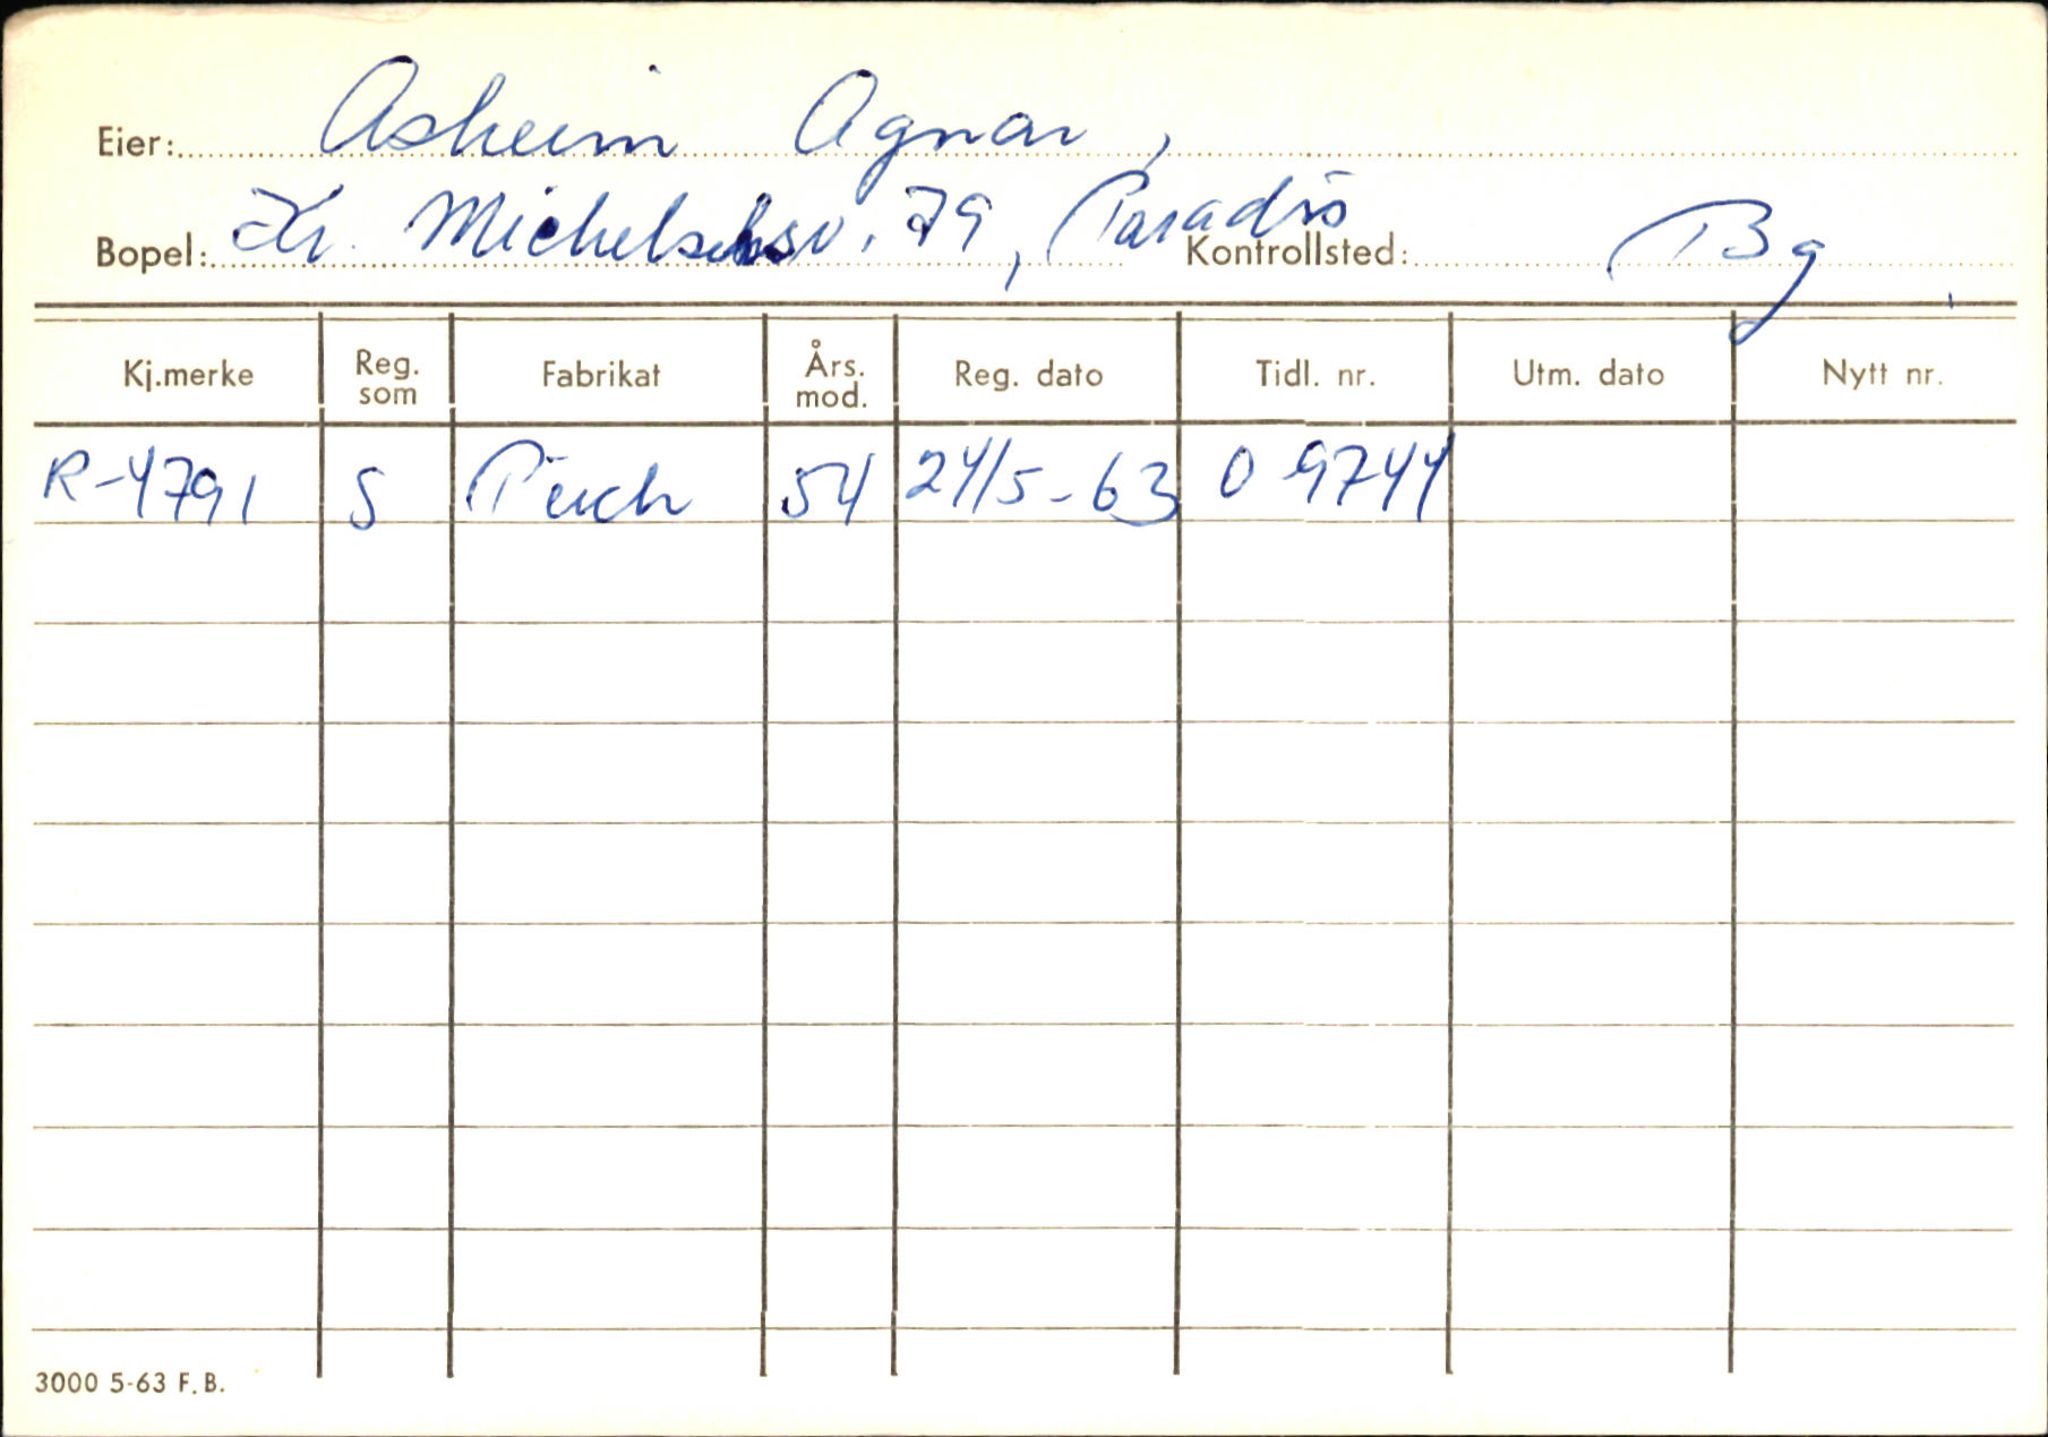 Eier: Asheim Agnar,
Bopel: Kr. Michelsensv. 79, Paradis Kontrollsted: Bg.
Kj.merke Reg. som Fabrikat Års. mod. Reg. dato Tidl. nr. Utm. dato Nytt nr.
R-4791 S Puch 54 24/5-63 O 9744
3000 5-63 F.B.